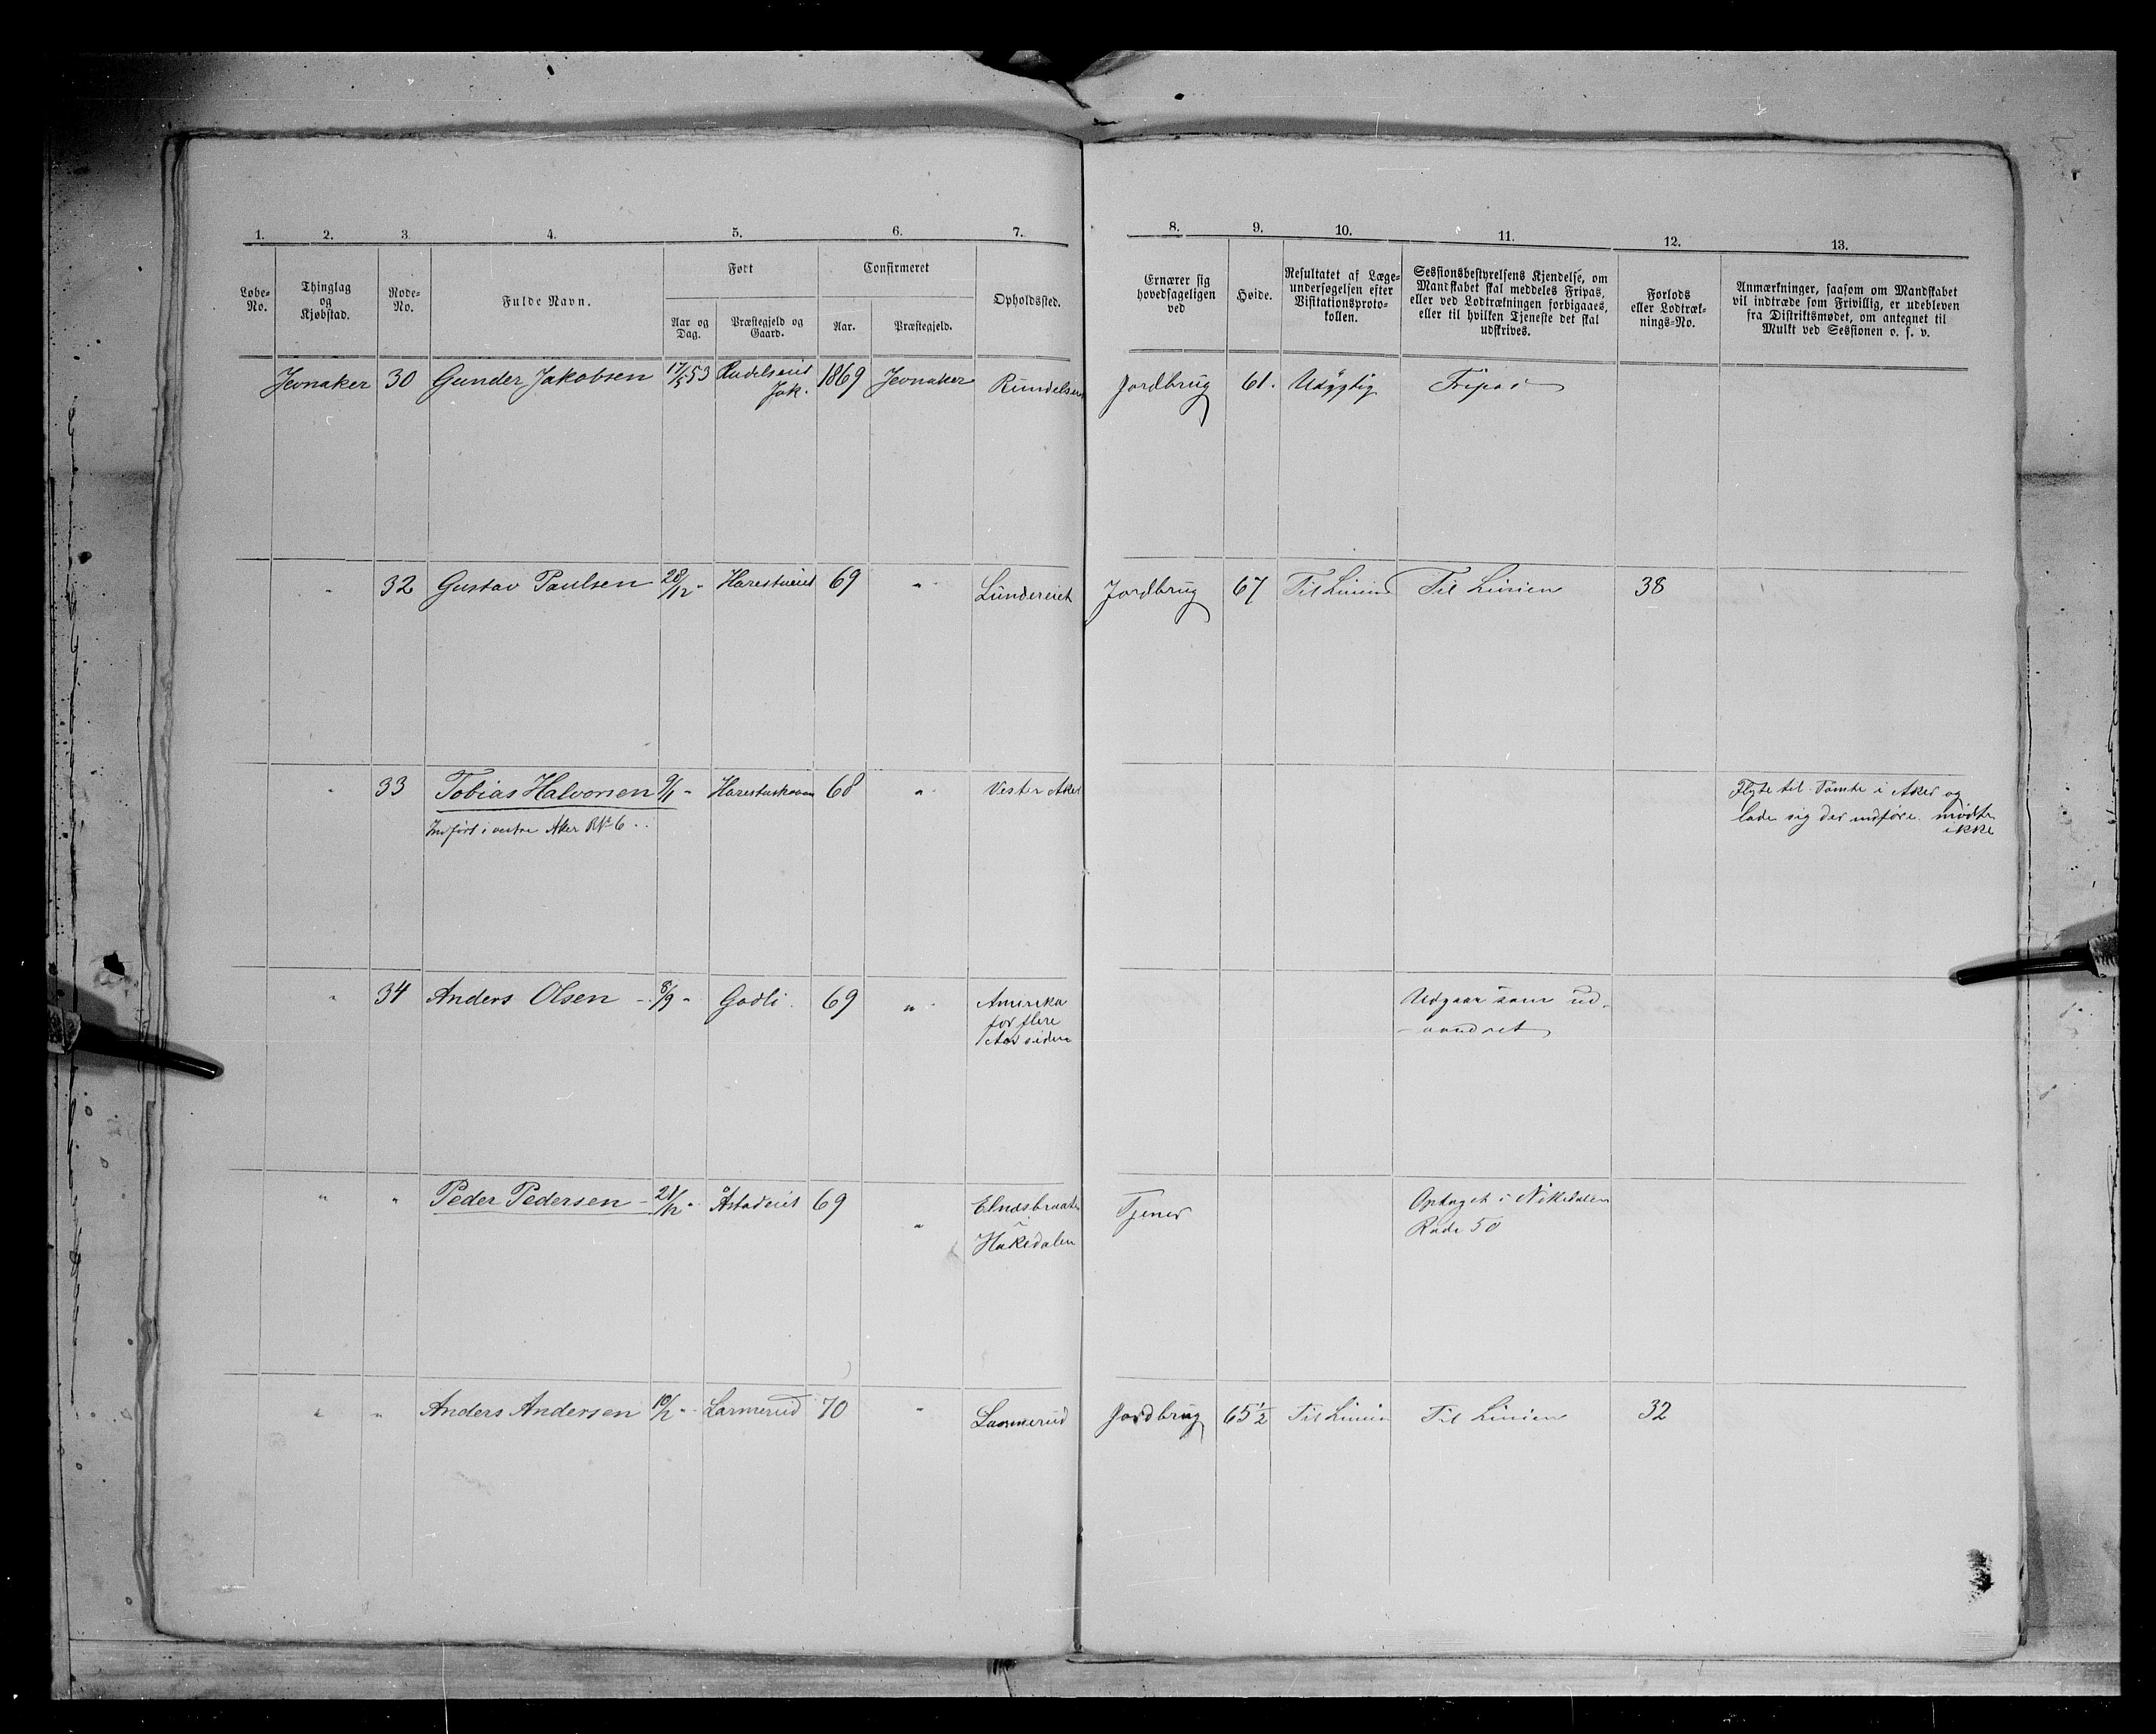 1. 2. 3. 4. 5. 6. 7. 8. 9. 10. 11. 12. 13.
Løbe-No.
Thinglag og Kjøbstad.
Rode-No.
Fulde Navn.
Født
Aar og Dag.
Præstegjeld og Gaard.
Confirmeret
Aar.
Præstegjeld.
Opholdssted.
Ernærer sig hovedsageligen ved
Høide.
Resultatet af Læge-undersøgelsen efter Visitationsproto-kollen.
Sessionsbestyrelsens Kjendelse, om Mandskabet skal meddeles Fripas, eller ved Lodtrækningen forbigaaes, eller til hvilken Tjeneste det skal udskrives.
Forlods eller Lodtræk-nings-No.
Anmærkninger, saasom om Mandskabet vil indtræde som Frivillig, er udebleven fra Distriktsmødet, om antegnet til Mulkt ved Sessionen o. s. v.
Jevnaker 30 Gunder Jakobsen 17/5 53 Rudelseiet Jak. 1869 Jevnaker Rundelsei Jordbrug 61. Udygtig Fripas
" 32 Gustav Paulsen 28/12 " Harestueiet 69 " Lundereiet Jordbrug 67 Til Linien Til Linien 38
" 33 Tobias Halvorsen 9/1 " 68 " Vester Aker
Indført i vestre Aker RNo 6
Flyte til Tomte i Aker og
lade sig der indføre. mødte
ikke
" 34 Anders Olsen 8/9 " Godli 69 " Amerika
for flere
Aar siden
Udgaar som ud-
vandret
" " Peder Pedersen 21/12 " Åstadeiet 69 " Elnesbraaten
i
Hakedalen
Tjener
Optaget i Nittedalen
Rode 50
" " Anders Andersen 10/2 " Larmerud 70 " Larmerud Jordbrug 65 1/2 Til Linien Til Linien 32